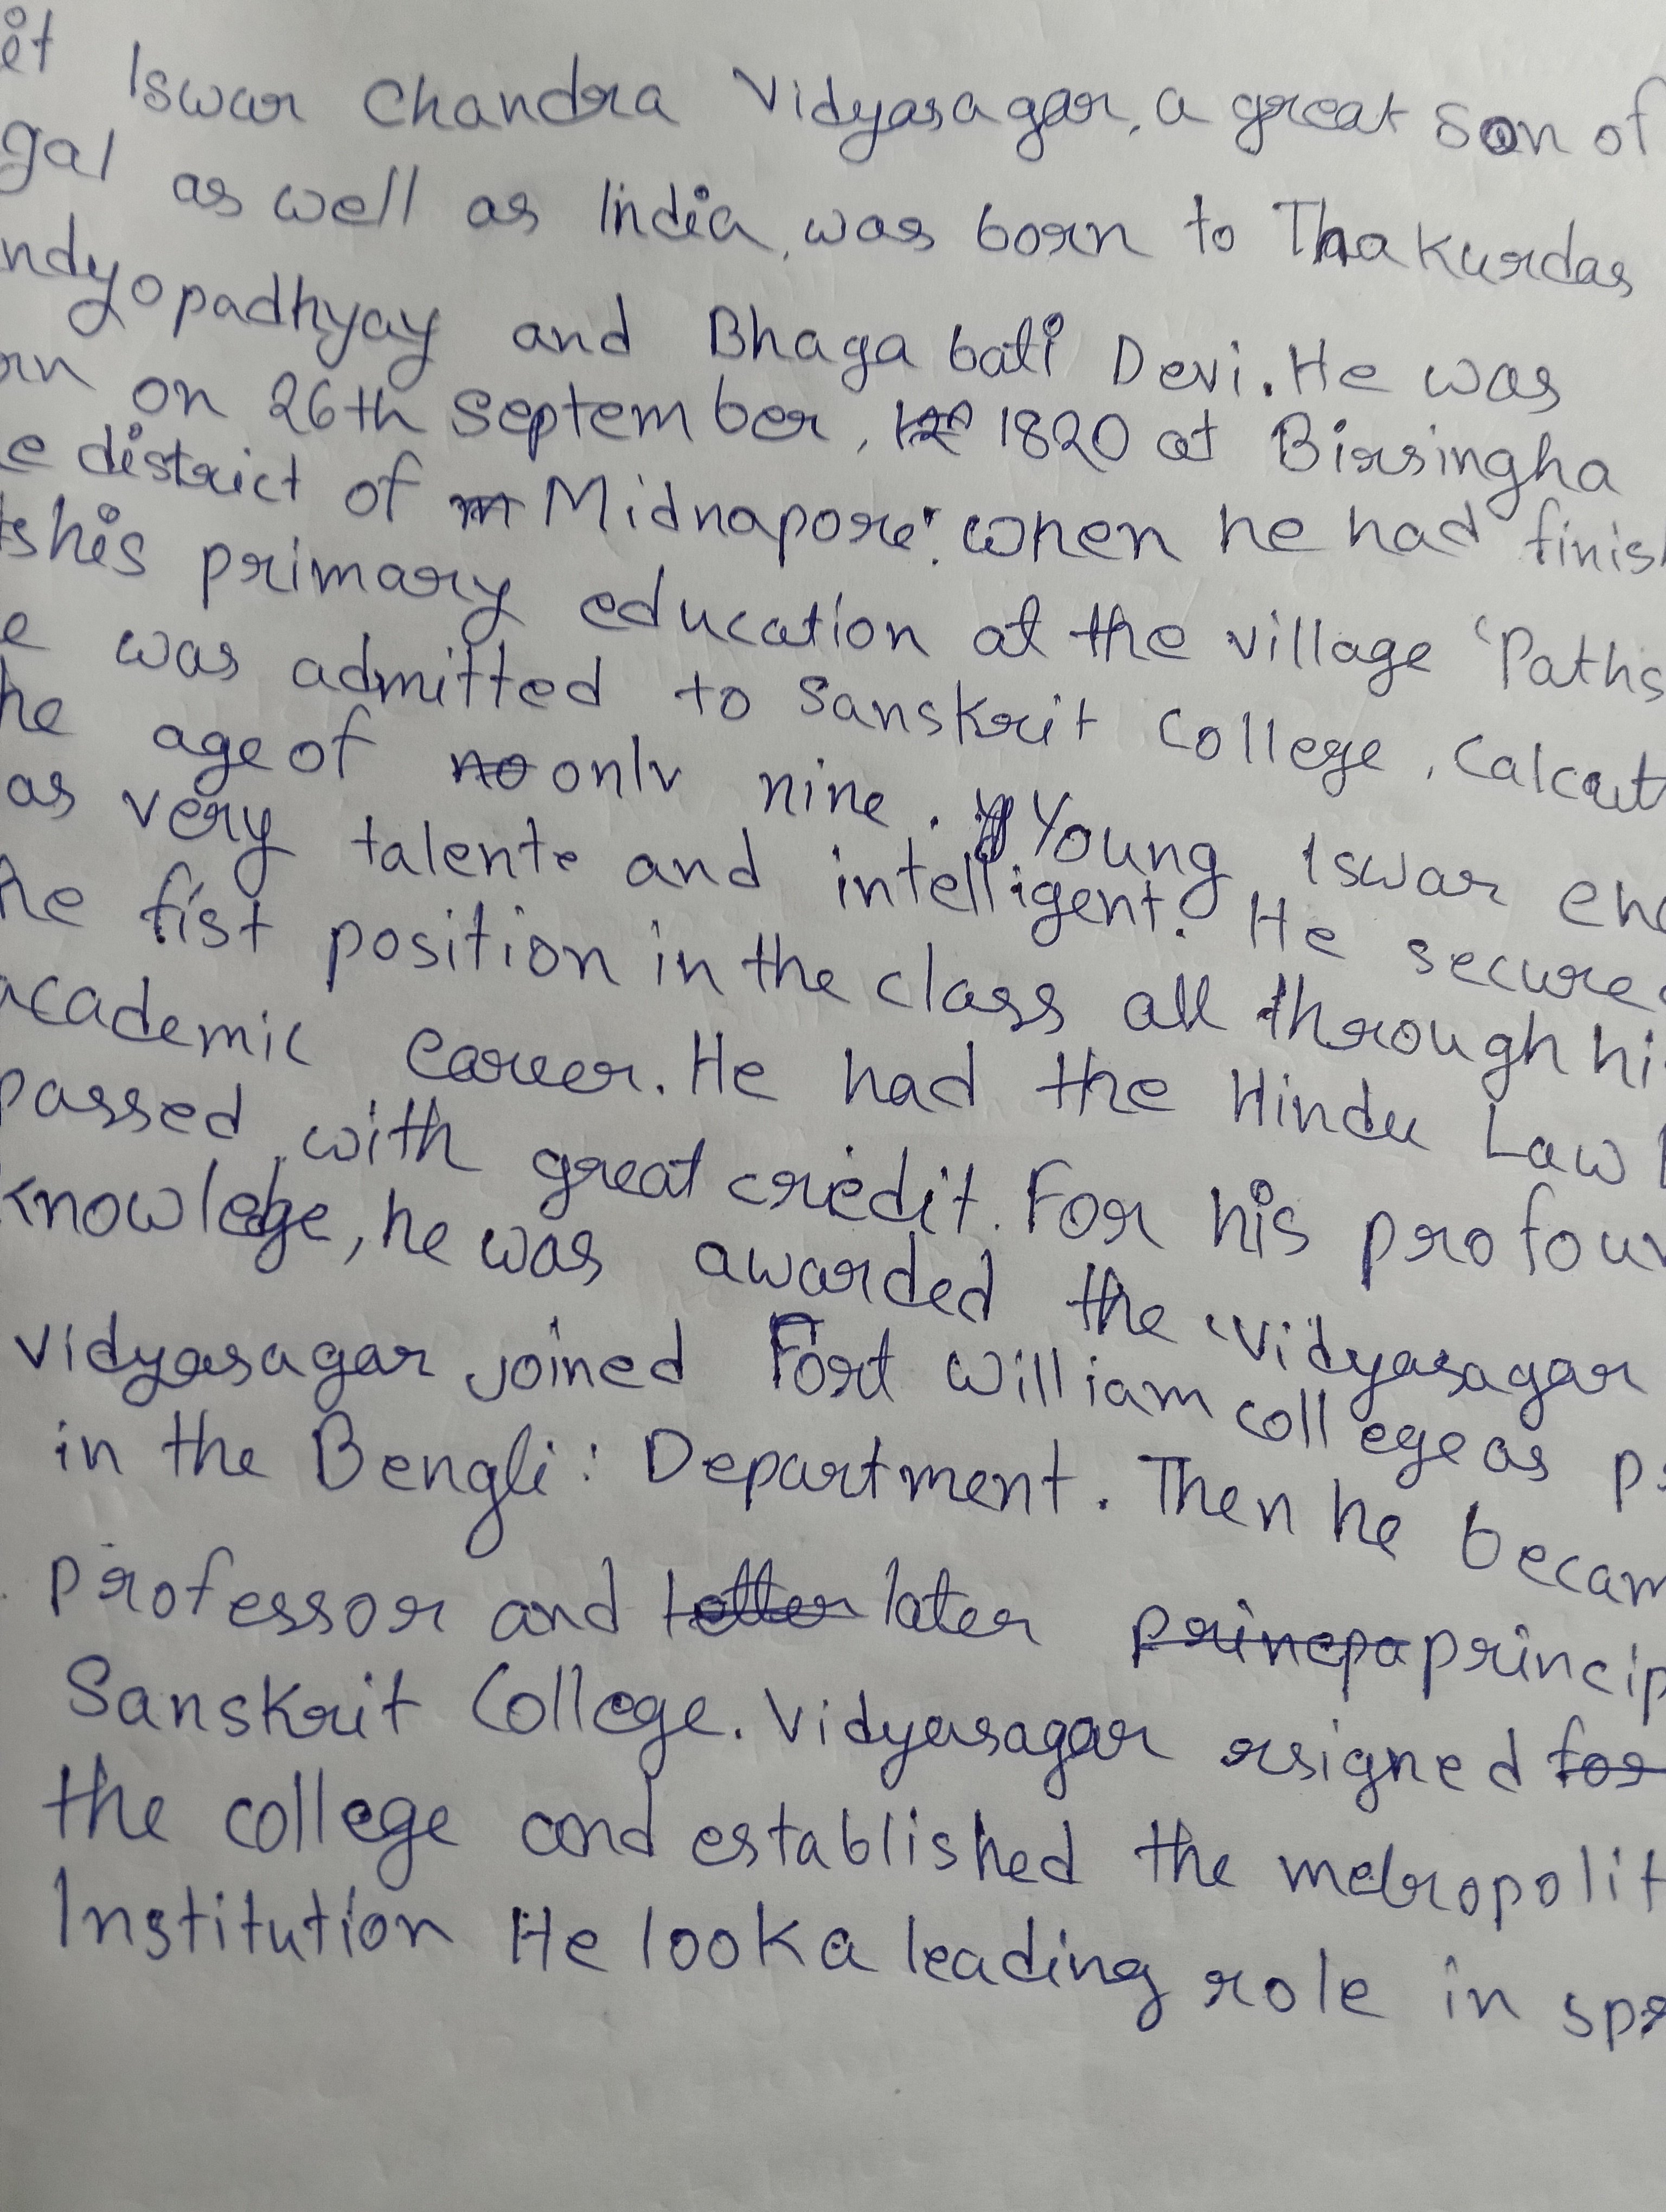 it Iswar Chandra Vidyasagar, a great son of
gal as well as India, was born to Thakurdas
ndyopadhyay and Bhagabati Devi. He was
rn on 26th September, 1820 at Birsingha
e district of Midnapore. when he had finish
his primary education at the village 'Paths
e was admitted to Sanskrit College, Calcutt
he age of only nine. Young Iswar
as very talente and intelligent. He secured
he fist position in the class all through hi
academic career. He had the Hindu Law
passed, with great credit. For his profoun
knowledge, he was awarded the 'Vidyasagar
Vidyasagar joined Fort William college as
in the Bengli: Department. Then he becam
professor and later princip
Sanskrit College. Vidyasagar rsigned
the college and established the metropolit
Institution He look a leading role in spr